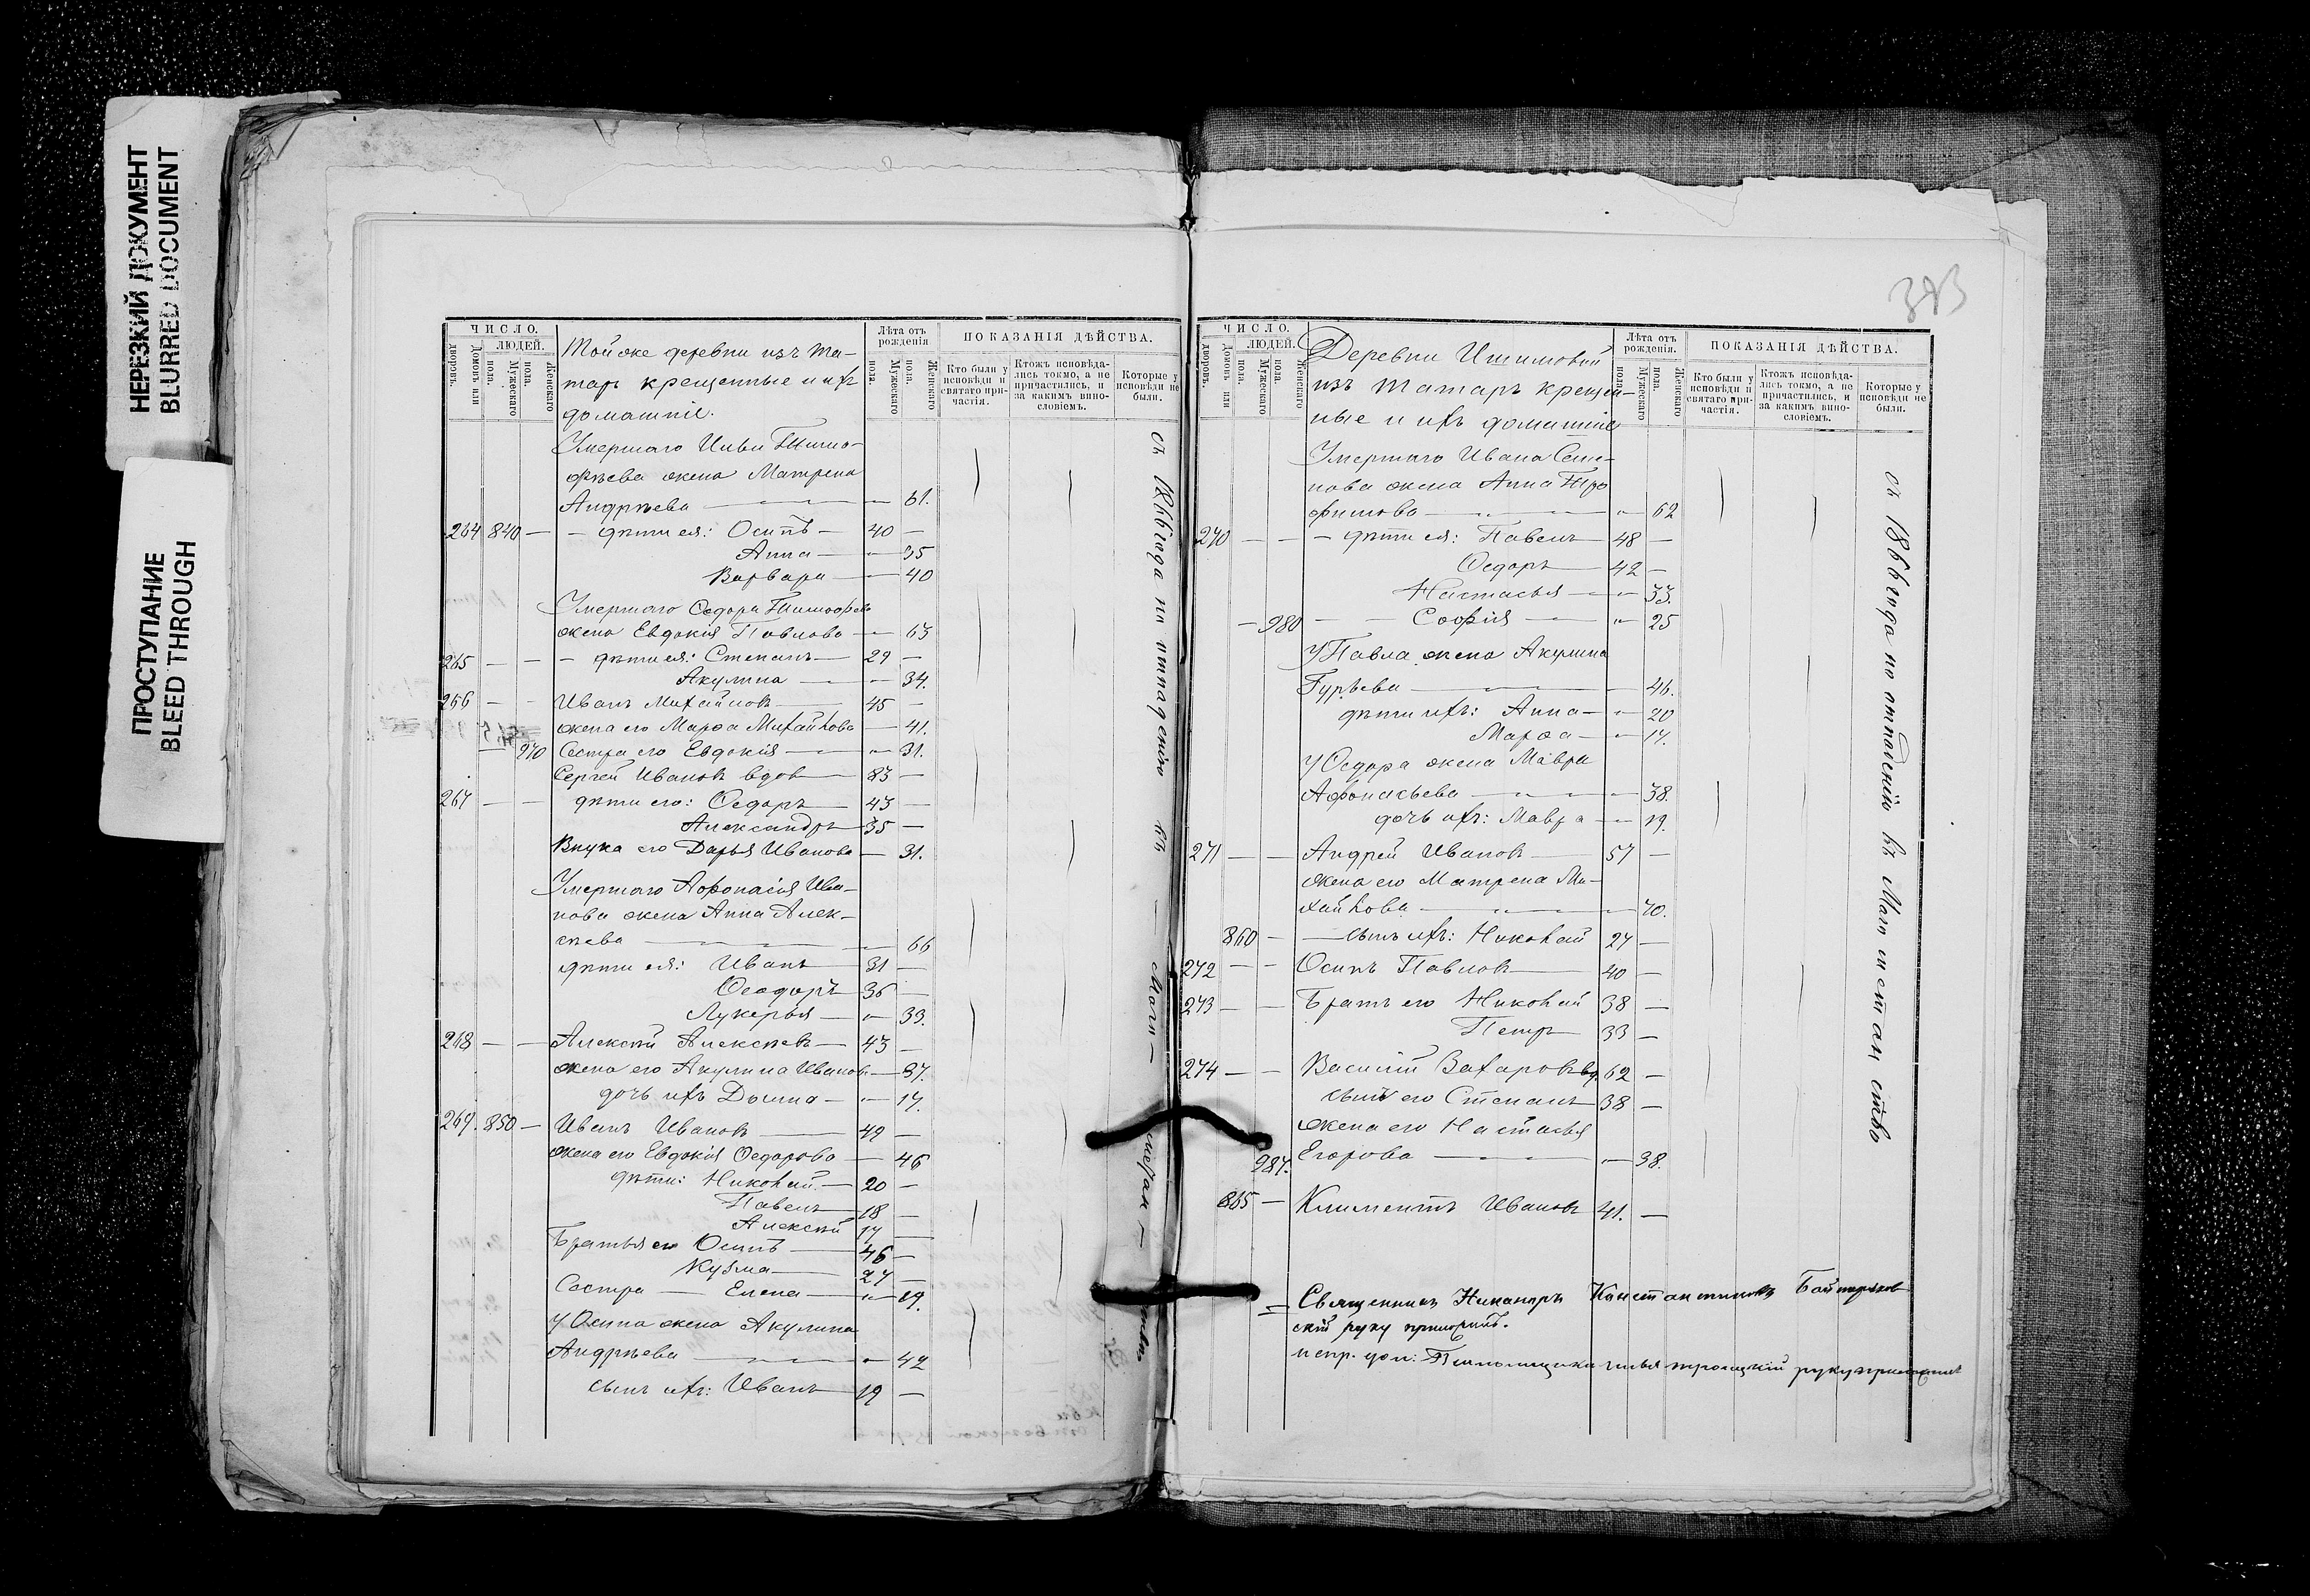 НЕРЕЗКИЙ ДОКУМЕНТ
BLURRED DOCUMENT
ПРОСТУПАНИЕ
BLEED THROUGH
ЧИСЛО.
ЛЮДЕЙ.
Домовъ или дворовъ.
Мужескаго пола.
Женскаго пола.
Тойже деревни изъ та-
таръ крещенные и ихъ
домашніе.
Лѣта отъ рожденія
Мужескаго пола.
Женскаго пола.
ПОКАЗАНІЯ ДѢЙСТВА.
Кто были у исповѣди и святаго при-частія.
Ктожъ исповѣда-лись токмо, а не причастились, и за какимъ вино-словіемъ.
Которые у исповѣди не были.
Умершаго Ильи Тимо-
фѣева жена Матрена
Андрѣева — 61.
264 840 — — дѣти ея: Осипъ — 40 —
Анна — 35
Варвара — 40
Умершаго Ѳедора Тимоѳѣева
жена Евдокія Павлова — 63
265 — — — дѣти ея: Степанъ — 29 —
Акулина — 34.
266 — — Иванъ Михайловъ — 45 —
жена его Марѳа Михайлова — 41.
— 970 Сестра его Евдокія — 31.
Сергей Ивановъ вдов — 83 —
267 — — дѣти его: Ѳедоръ — 43 —
Александръ — 35 —
Внука его Дарья Иванова — 31.
Умершаго Афонасія Ива-
нова жена Анна Алек-
сѣева — 66
дѣти ея: Иванъ 31 —
Ѳеодоръ 36 —
Лукерья — 33.
268 — — Алексѣй Алексѣевъ — 43 —
жена его Акулина Иванов — 37.
дочь ихъ Домна — 17.
269. 850 — Иванъ Ивановъ — 49 —
жена его Евдокія Ѳедорова — 46
дѣти: Николай — 20 —
Павелъ — 18 —
Алексѣй 17 —
Братья его Осипъ — 46 —
Кузма — 27 —
Сестра — Елена — 19.
У Осипа жена Акулина
Андрѣева — 42
сынъ ихъ: Иванъ 19 —
съ 1866 года по отпаденію въ — Маги — метан —
ЧИСЛО.
ЛЮДЕЙ.
Домовъ или дворовъ.
Мужескаго пола.
Женскаго пола.
Деревни Ишимовой
изъ татаръ крещен-
ные и ихъ домашніе
Лѣта отъ рожденія.
Мужескаго пола.
Женскаго пола.
ПОКАЗАНІЯ ДѢЙСТВА.
Кто были у исповѣди и святаго при-частія.
Ктожъ исповѣда-лись токмо, а не причастились, и за какимъ вино-словіемъ.
Которые у исповѣди не были.
Умершаго Ивана Семе-
нова жена Анна Тро
фимова — 62
270 — — — дѣти ея: Павелъ 48 —
Ѳедоръ 42 —
Настасья — 33.
— 980 — — Софія — 25
У Павла жена Акулина
Гурьева — 46.
дѣти ихъ: Анна — 20
Марѳа — 17.
У Ѳедора жена Мавра
Афонасьева — 38.
дочь ихъ: Мавра — 19.
271 — — Андрей Ивановъ — 57 —
жена его Матрена Ми-
хайлова — 70.
860 — — сынъ ихъ: Николай 27 —
272 — — Осипъ Павловъ — 40 —
273 — — Братъ его Николай 38 —
Петръ 33 —
274 — — Василій Захаровъ вд. 62 —
сынъ его Степанъ 38 —
жена его Настасья
987. Егорова — 38.
865 — Климентъ Ивановъ 41. —
съ 1866 года по отпаденію въ Магометанство
Священникъ Никаноръ Константиновъ
скій руку приложилъ.